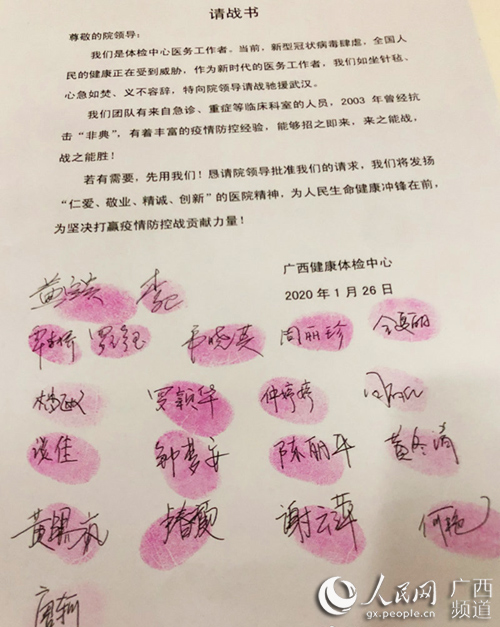 请战书
尊敬的院领导:
我们是体检中心医务工作者。当前,新型冠状病毒肆虐,全国人
民的健康正在受到威胁,作为新时代的医务工作者,我们如坐针毡、
心急如焚、义不容辞,特向院领导请战驰援武汉。
我们团队有来自急诊、重症等临床科室的人员,2003 年曾经抗
击“非典”,有着丰富的疫情防控经验,能够招之即来,来之能战,
战之能胜!
若有需要,先用我们!恳请院领导批准我们的请求,我们将发扬
“仁爱、敬业、精诚、创新”的医院精神,为人民生命健康冲锋在前,
为坚决打赢疫情防控战贡献力量!
广西健康体检中心
2020 年 1 月 26 日
韦晓英 周丽珍
罗颖华 仲婷婷
谈佳 钟梦安 陈丽华 黄冬清
谢云萍 何艳
人民网 广西频道
gx.people.cn